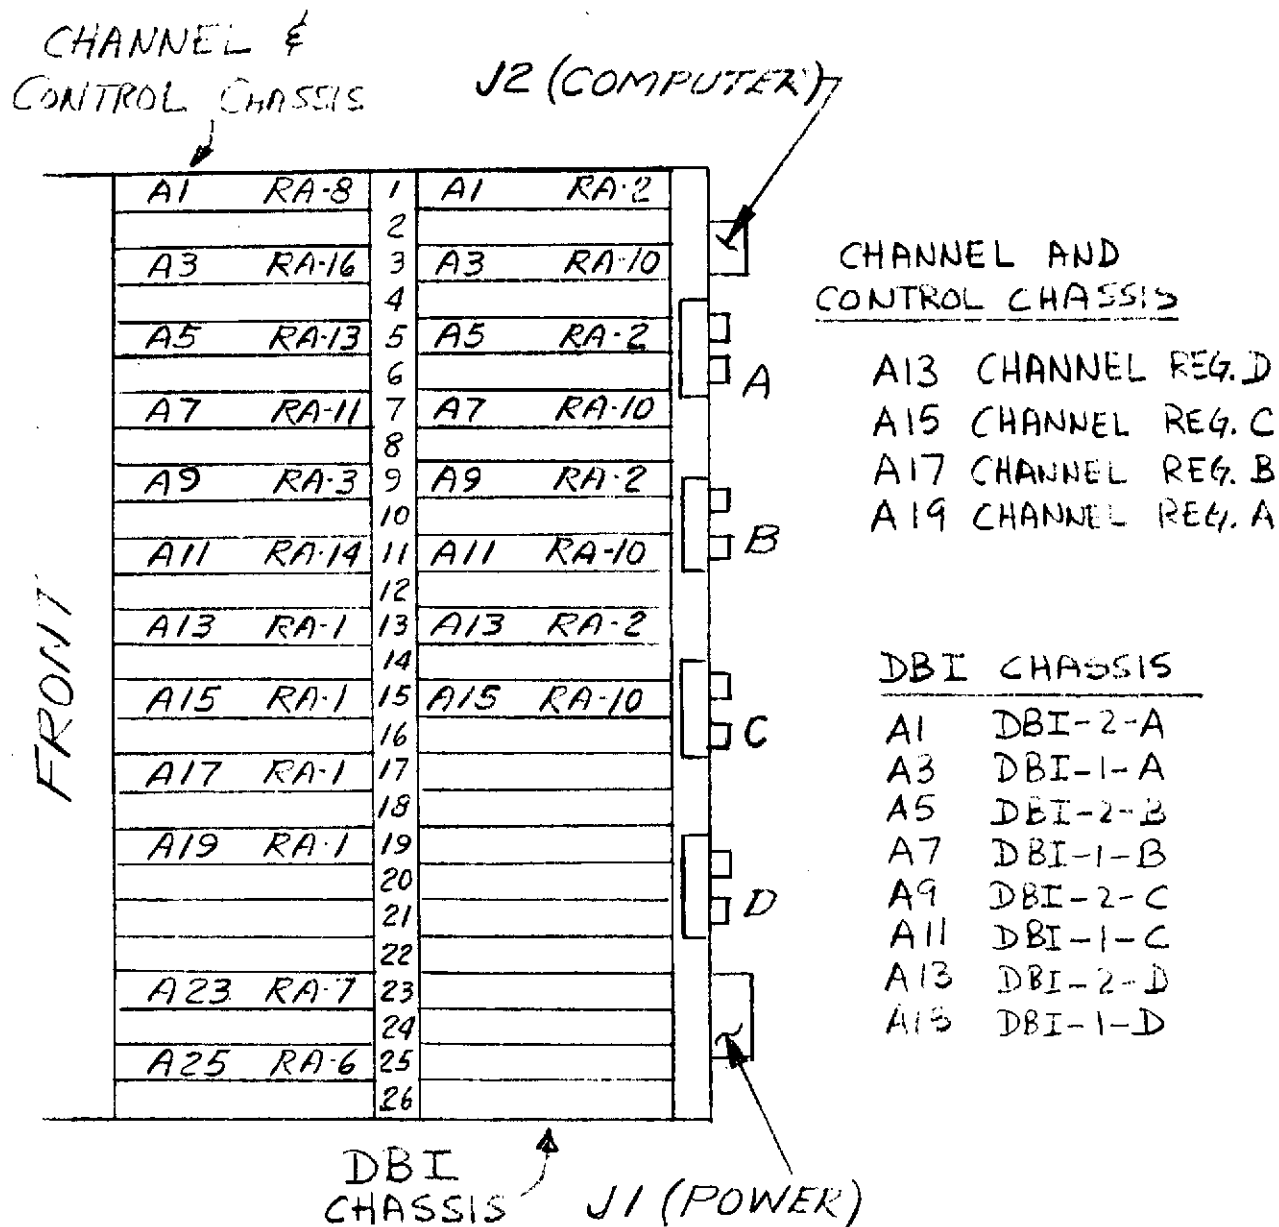 CHANNEL &
CONTROL CHASSIS
J2 (COMPUTER)
A1 RA-8 1 A1 RA-2
2
A3 RA-16 3 A3 RA-10
4
A5 RA-13 5 A5 RA-2
6
A
A7 RA-11 7 A7 RA-10
8
A9 RA-3 9 A9 RA-2
10
A11 RA-14 11 A11 RA-10
B
12
A13 RA-1 13 A13 RA-2
14
A15 RA-1 15 A15 RA-10
16
C
A17 RA-1 17
18
A19 RA-1 19
20
21
D
22
A23 RA-7 23
24
A25 RA-6 25
26
FRONT
DBI
CHASSIS
J1 (POWER)
CHANNEL AND
CONTROL CHASSIS
A13 CHANNEL REG. D
A15 CHANNEL REG. C
A17 CHANNEL REG. B
A19 CHANNEL REG. A
DBI CHASSIS
A1 DBI-2-A
A3 DBI-1-A
A5 DBI-2-B
A7 DBI-1-B
A9 DBI-2-C
A11 DBI-1-C
A13 DBI-2-D
A15 DBI-1-D